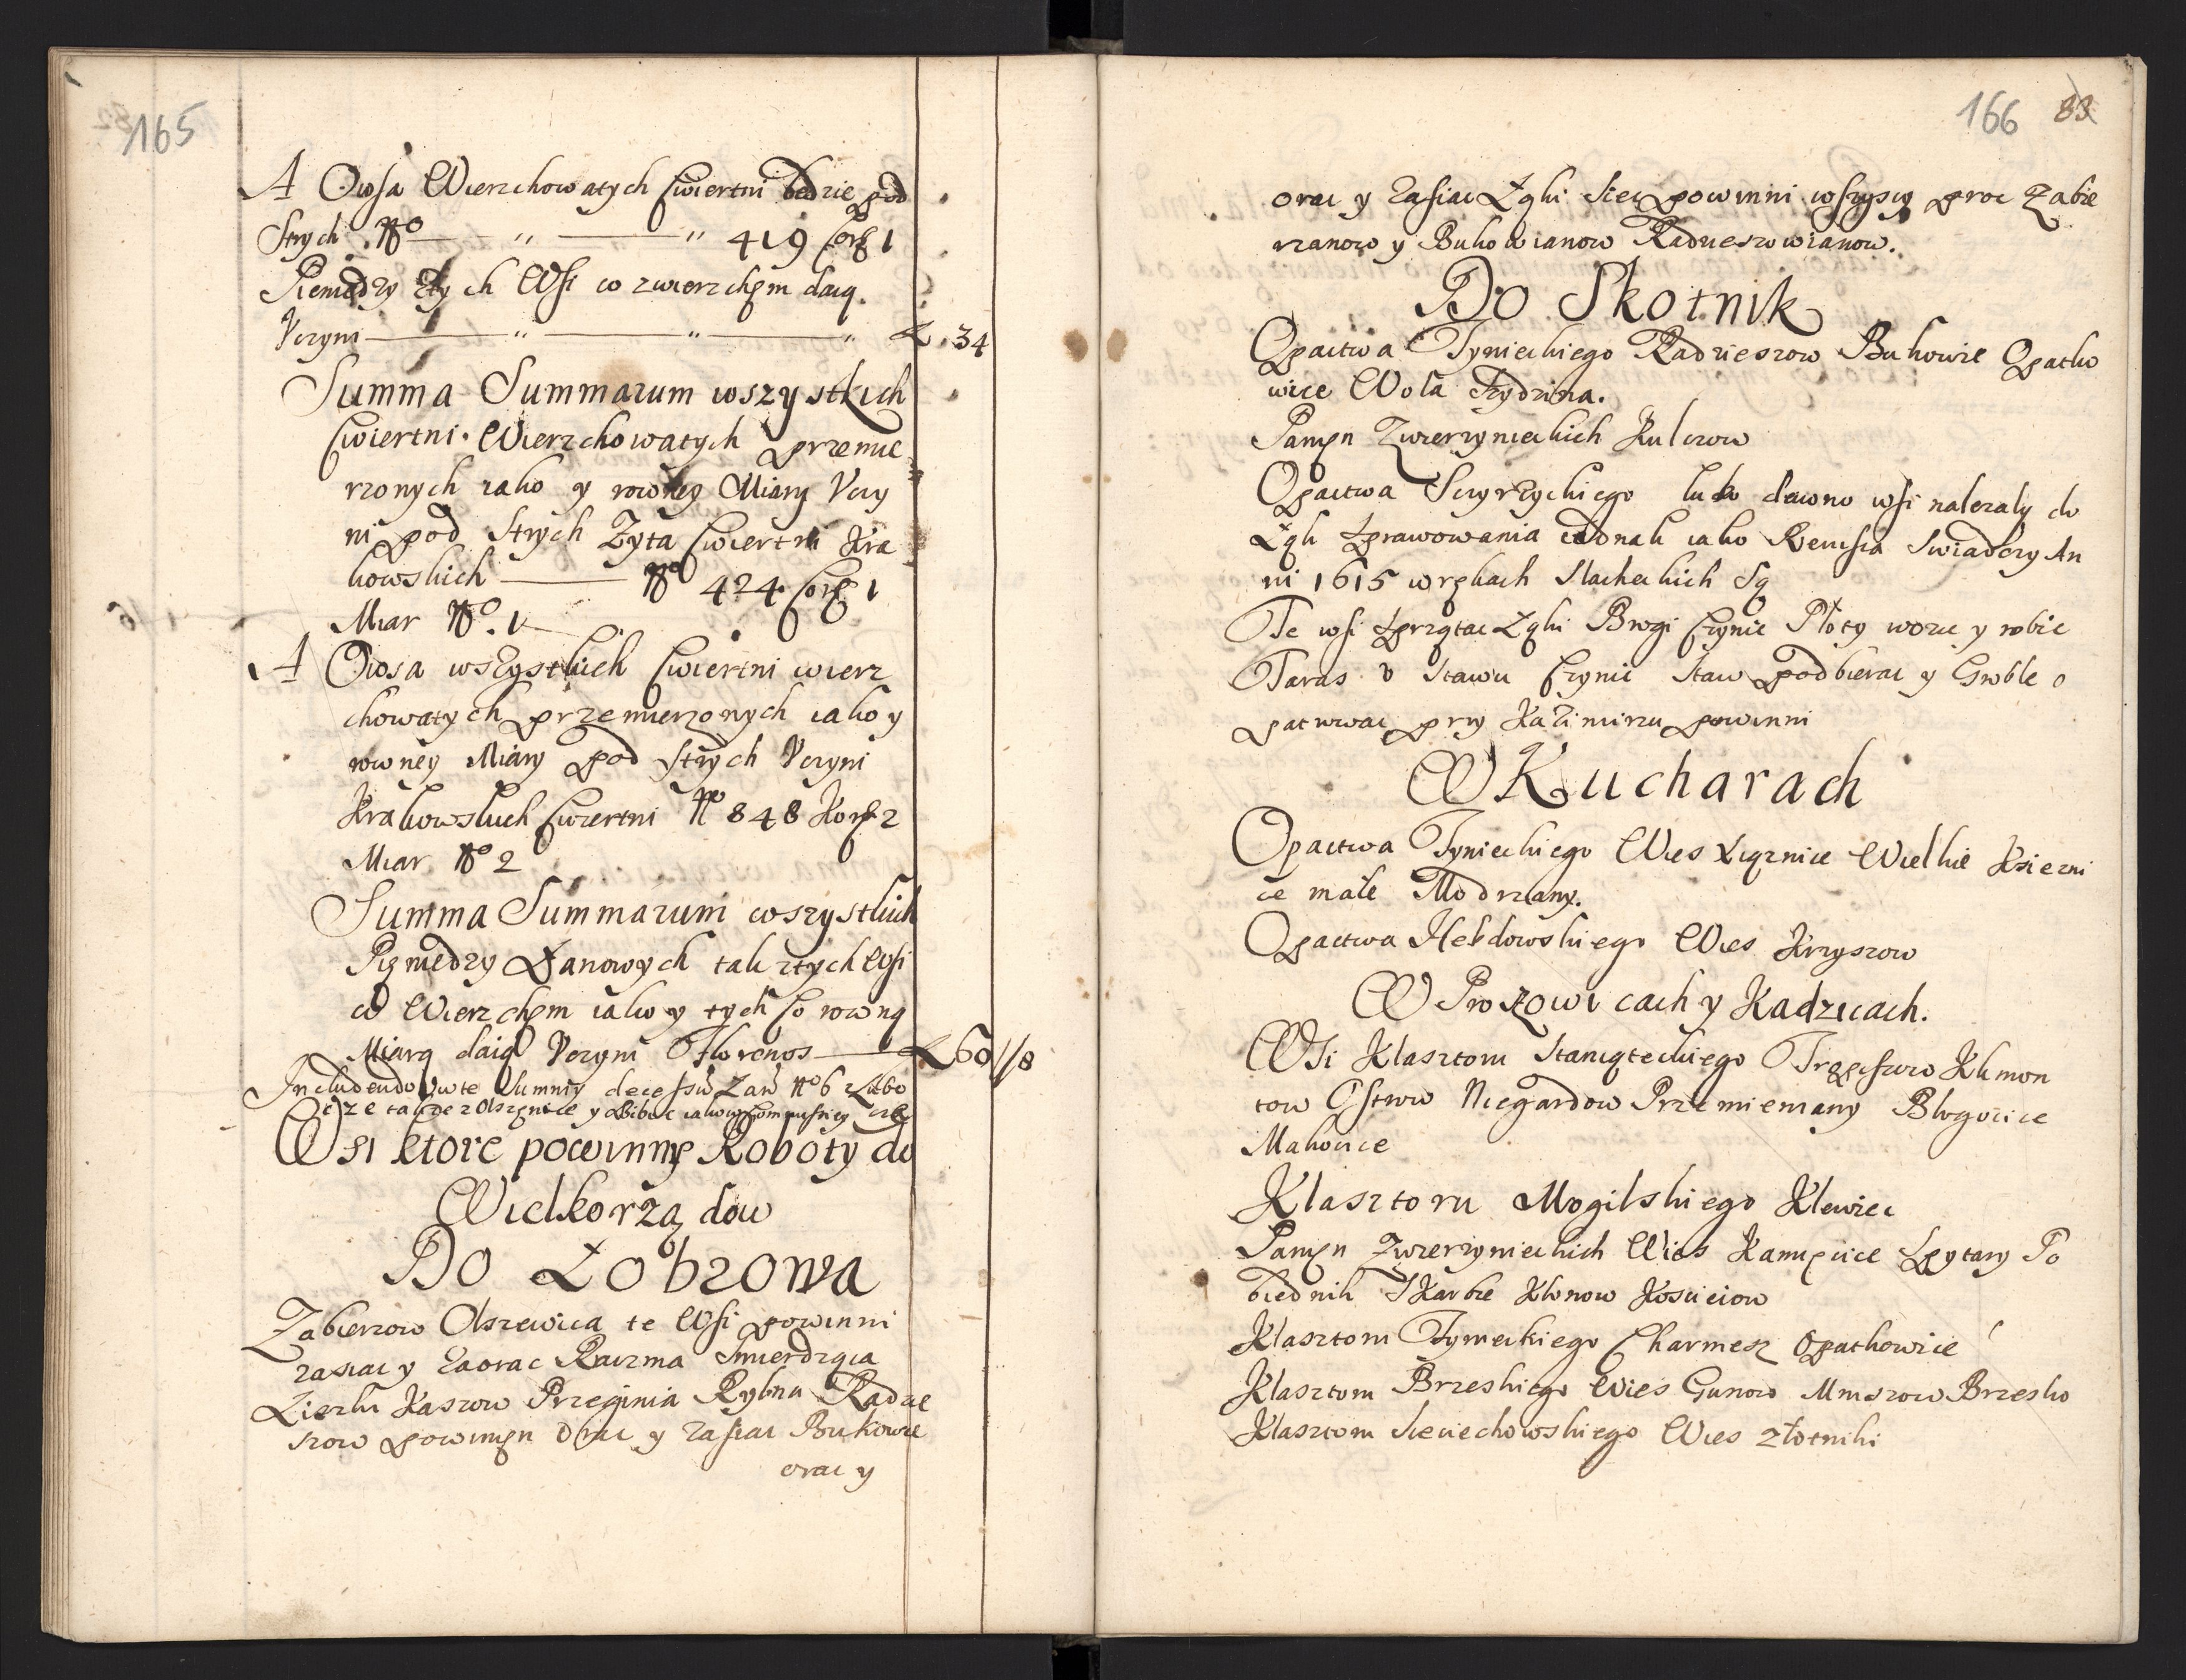 165
A Owsa Wierzchowatych Cwiertni będzie pod
Strych No — " — " 419 Corz 1
Pieniędzy z tych Wsi co z wierzchęm daią.
Vczyni — " — " — " Z. 34
Summa Summarum wszystkich
Cwiertni Wierzchowatych przemie
rzonych iako y rowney Miary Vczy
ni pod Strych Zyta Cwiertni Kra
kowskich — No 424 Corz 1
Miar No. 1
A Owsa wszystkich Cwiertni wierz
chowatych przemierzonych iako y
rowney Miary pod Strych Vczyni
Krakowskich Cwiertni No 848 Korz 2
Miar No 2
Summa Summarum wszystkich
Pieniędzy Łanowych tak z tych Wsi
co Wierzchęm iako y tych Co rowną
Miarą daią Vczyni Florenos — Z 60 //8
Includendo w te Summy No 6
y
Wsi ktore powinny Roboty do
Wielkorządow
Do Łobzowa
Zabierzow Olszewica te Wsi powinni
zasiac y zaorac Raczna Smierdząca
Liszki Kaszow Przeginia Rybna Radzie
szow powinęn Orac y zasiac Bukowie
orac y
166 83
orac y zasiac Łąki Siec powinni wszyscy proc Zabie
rzanow y Bukowianow Radzieszowianow.
Do Skotnik
Opactwa Tynieckiego Radzieszow Bukowie Opatko
wice Wola Rydzina.
Panięn Zwierzynieckich Kulczow
Opactwa Sczyrzyckiego lubo dawno wsi nalezaly do
Łąk Sprawowania iednak iako Rewisia Swiadczy An
ni 1615 w rękach Slacheckich Są
Te wsi Sprzątac Łąki Brogi Czynic Płoty wozic y robic
Taras v Stawu Czynic Staw podbierac y Groble o
patrowac przy Kazimirzu powinni
W Kucharach
Opactwa Tynieckiego Wies Xiąznice Wielkie Ksiezni
ce małe Modrzany.
Opactwa Hebdowskiego Wies Krzyszow
W Proszowicach y Kadzicach.
Wsi Klasztoru Staniąteckiego Klimon
tow Ostrow Niegardow Przemieniany Blogocice
Makocice
Klasztoru Mogilskiego Klewiec
Panięn Zwierzynieckich Wies Kamięcice Spytary Po
biednik Skarbie Klonow Koscieiow
Klasztoru Tynieckiego Charmesz Opatkowice
Klasztoru Brzeskiego Wies Gunow Mniszow Brzesko
Klasztoru Sieciechowskiego Wies złotniki